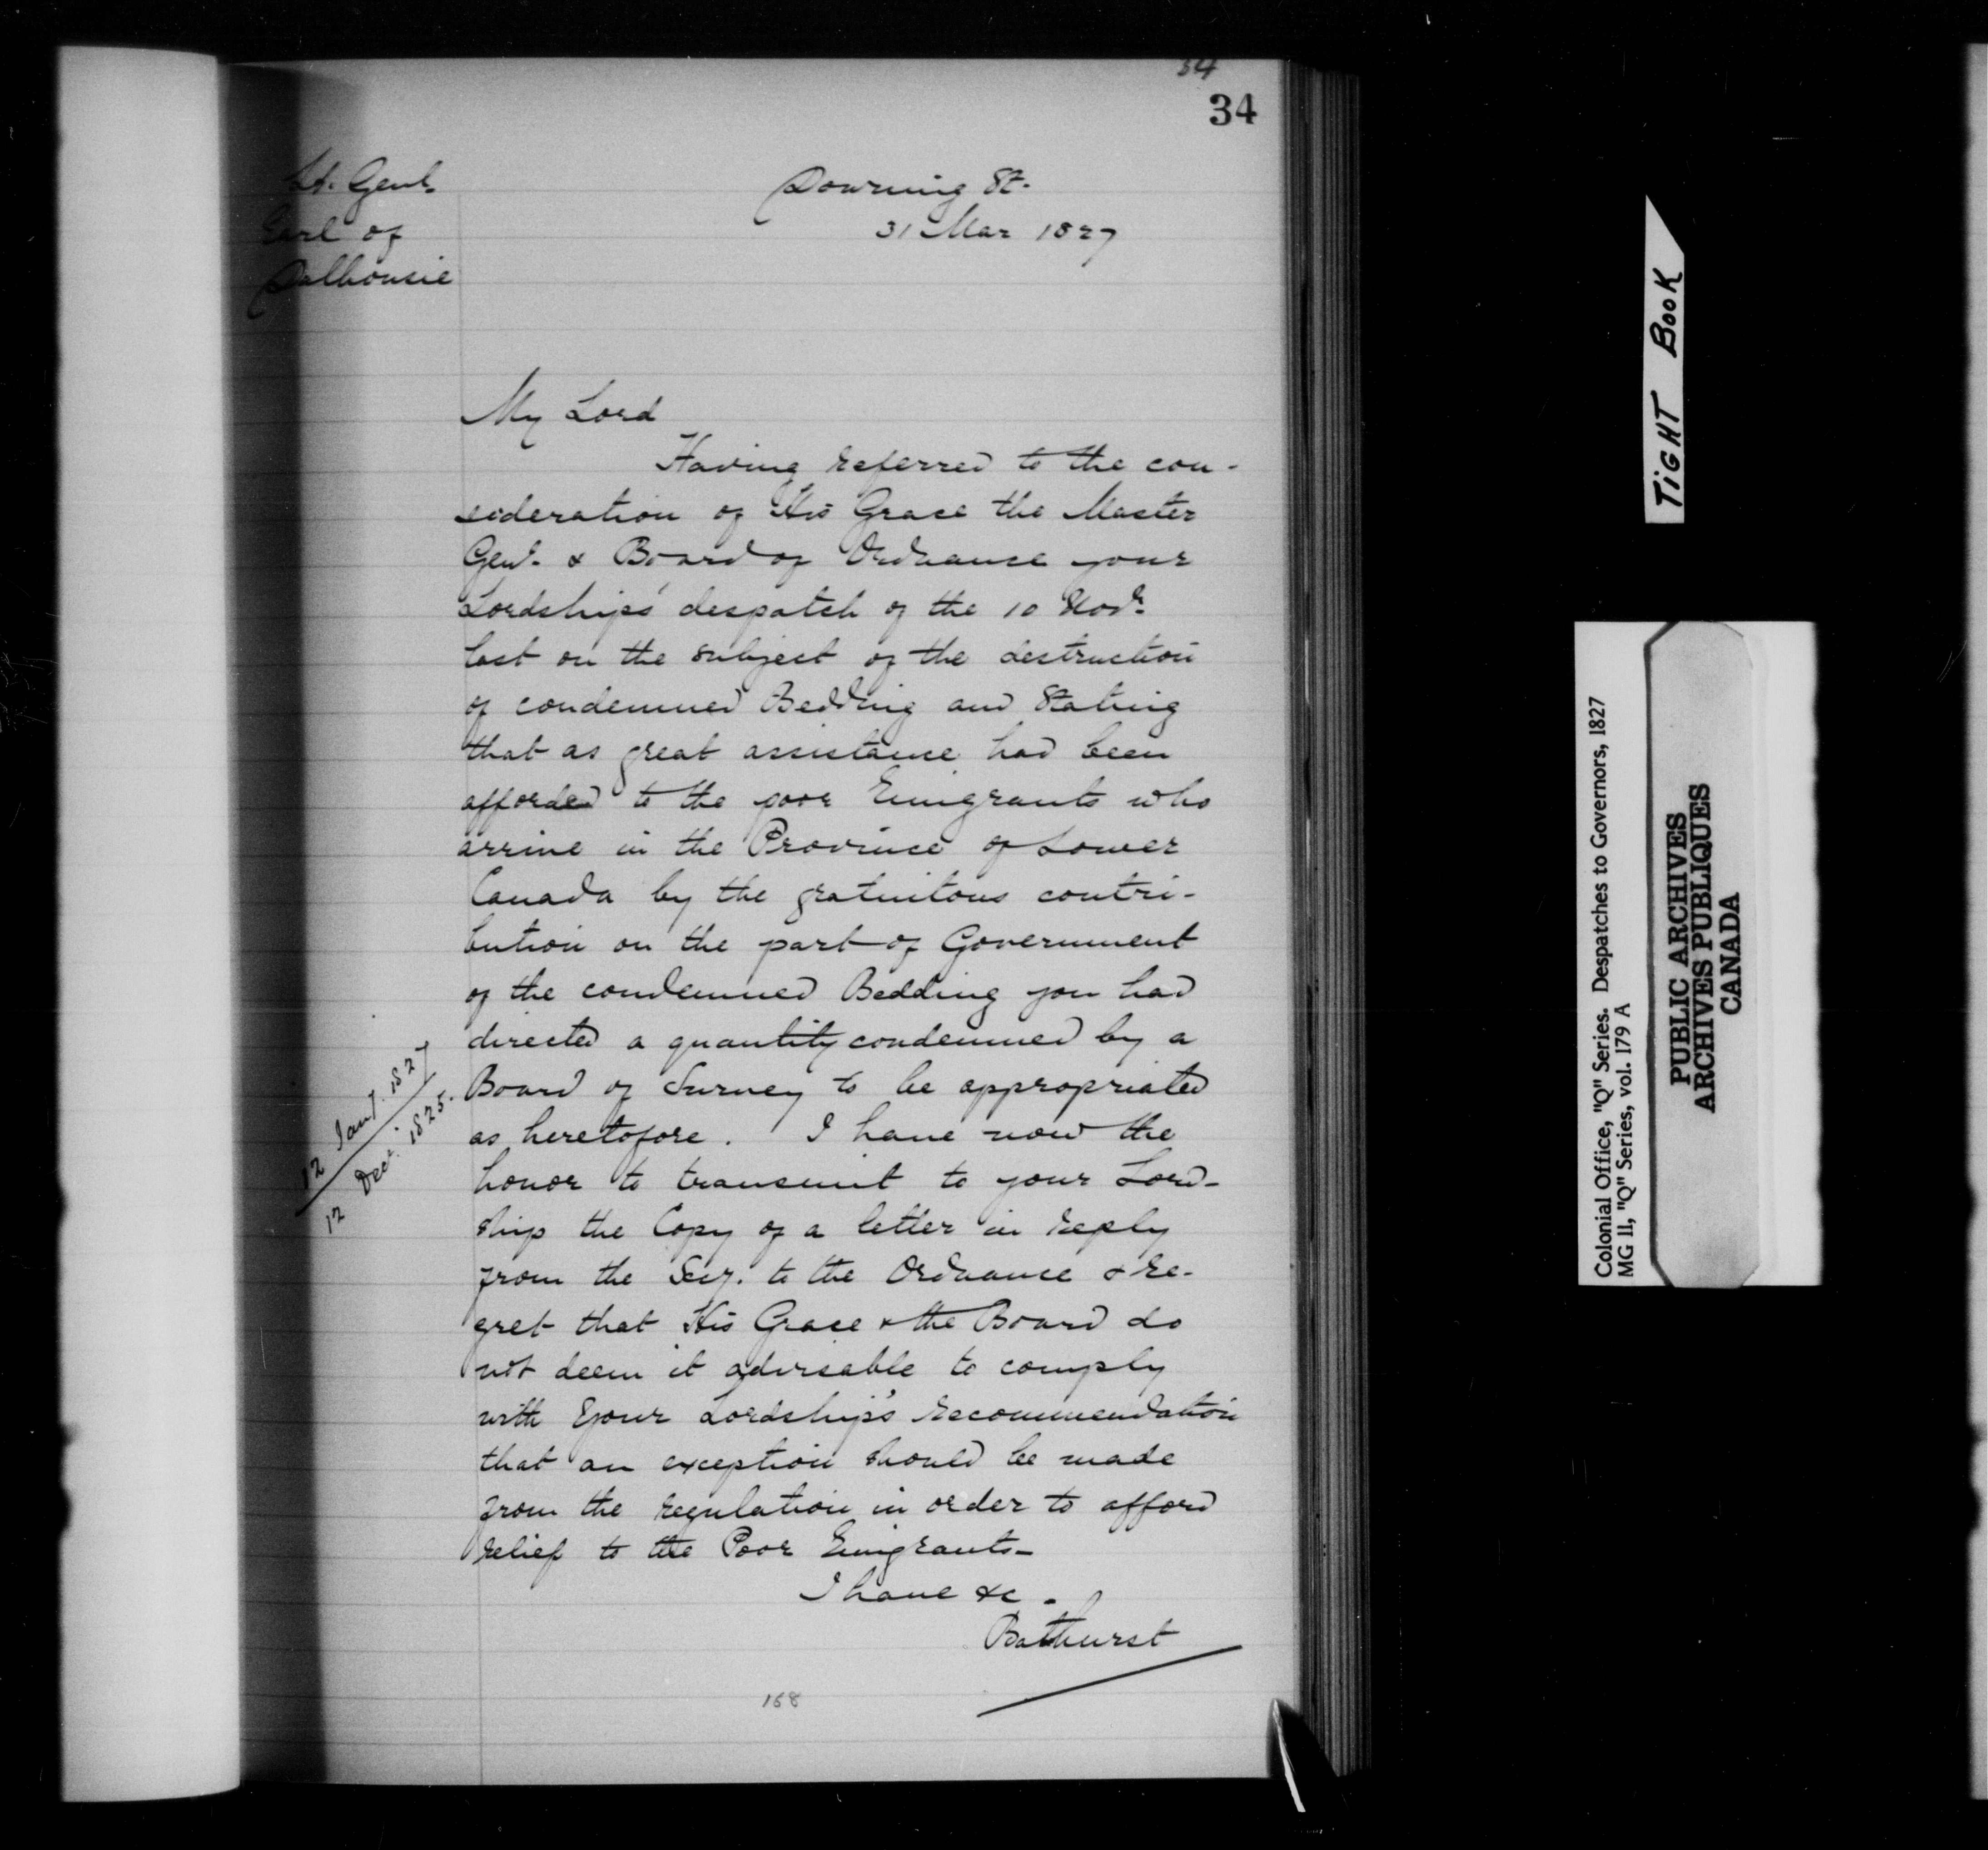 34
34
Lt. Genl.
Earl of
Dalhousie
Downing St.
31 Mar 1827
My Lord
Having referred to the con-
sideration of His Grace the Master
Genl. & Board of Ordnance your
Lordships' despatch of the 10 Novr.
last on the subject of the destruction
of condemned Bedding and stating
that as great assistance had been
afforded to the poor Emigrants who
arrive in the Province of Lower
Canada by the gratuitous contri-
bution on the part of Government
of the condemned Bedding you had
directed a quantity condemned by a
Board of Survey to be appropriated
as heretofore. I have now the
honor to transmit to your Lord-
ship the Copy of a letter in reply
from the Secy. to the Ordnance & re-
gret that His Grace & the Board do
not deem it advisable to comply
with your Lordship's recommendation
that an exception should be made
from the regulation in order to afford
relief to the Poor Emigrants-
I have &c.
Bathurst
12 Jany. 1827
12 Decr. 1825.
168
TIGHT BOOK
Colonial Office, "Q" Series. Despatches to Governors, 1827
MG 11, "Q" Series, vol. 179 A
PUBLIC ARCHIVES
ARCHIVES PUBLIQUES
CANADA